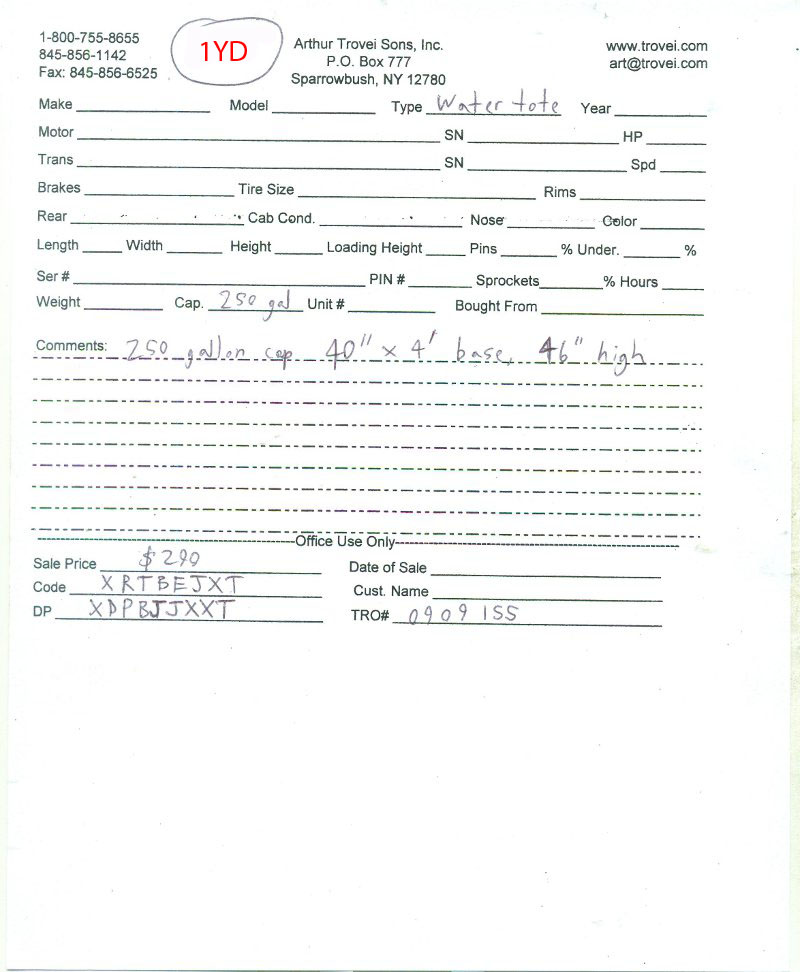 1-800-755-8655
845-856-1142
Fax: 845-856-6525
1YD
Arthur Trovei Sons, Inc.
P.O. Box 777
Sparrowbush, NY 12780
www.trovei.com
art@trovei.com
Make Model Type Water tote Year
Motor SN HP
Trans SN Spd
Brakes Tire Size Rims
Rear Cab Cond. Nose Color
Length Width Height Loading Height Pins % Under. %
Ser # PIN # Sprockets % Hours
Weight Cap. 250 gal Unit # Bought From
Comments: 250 gallon cap 40" x 4' base, 46" high
Office Use Only
Sale Price $290 Date of Sale
Code XRTBEJXT Cust. Name
DP XDPBJJXXT TRO# 0909155